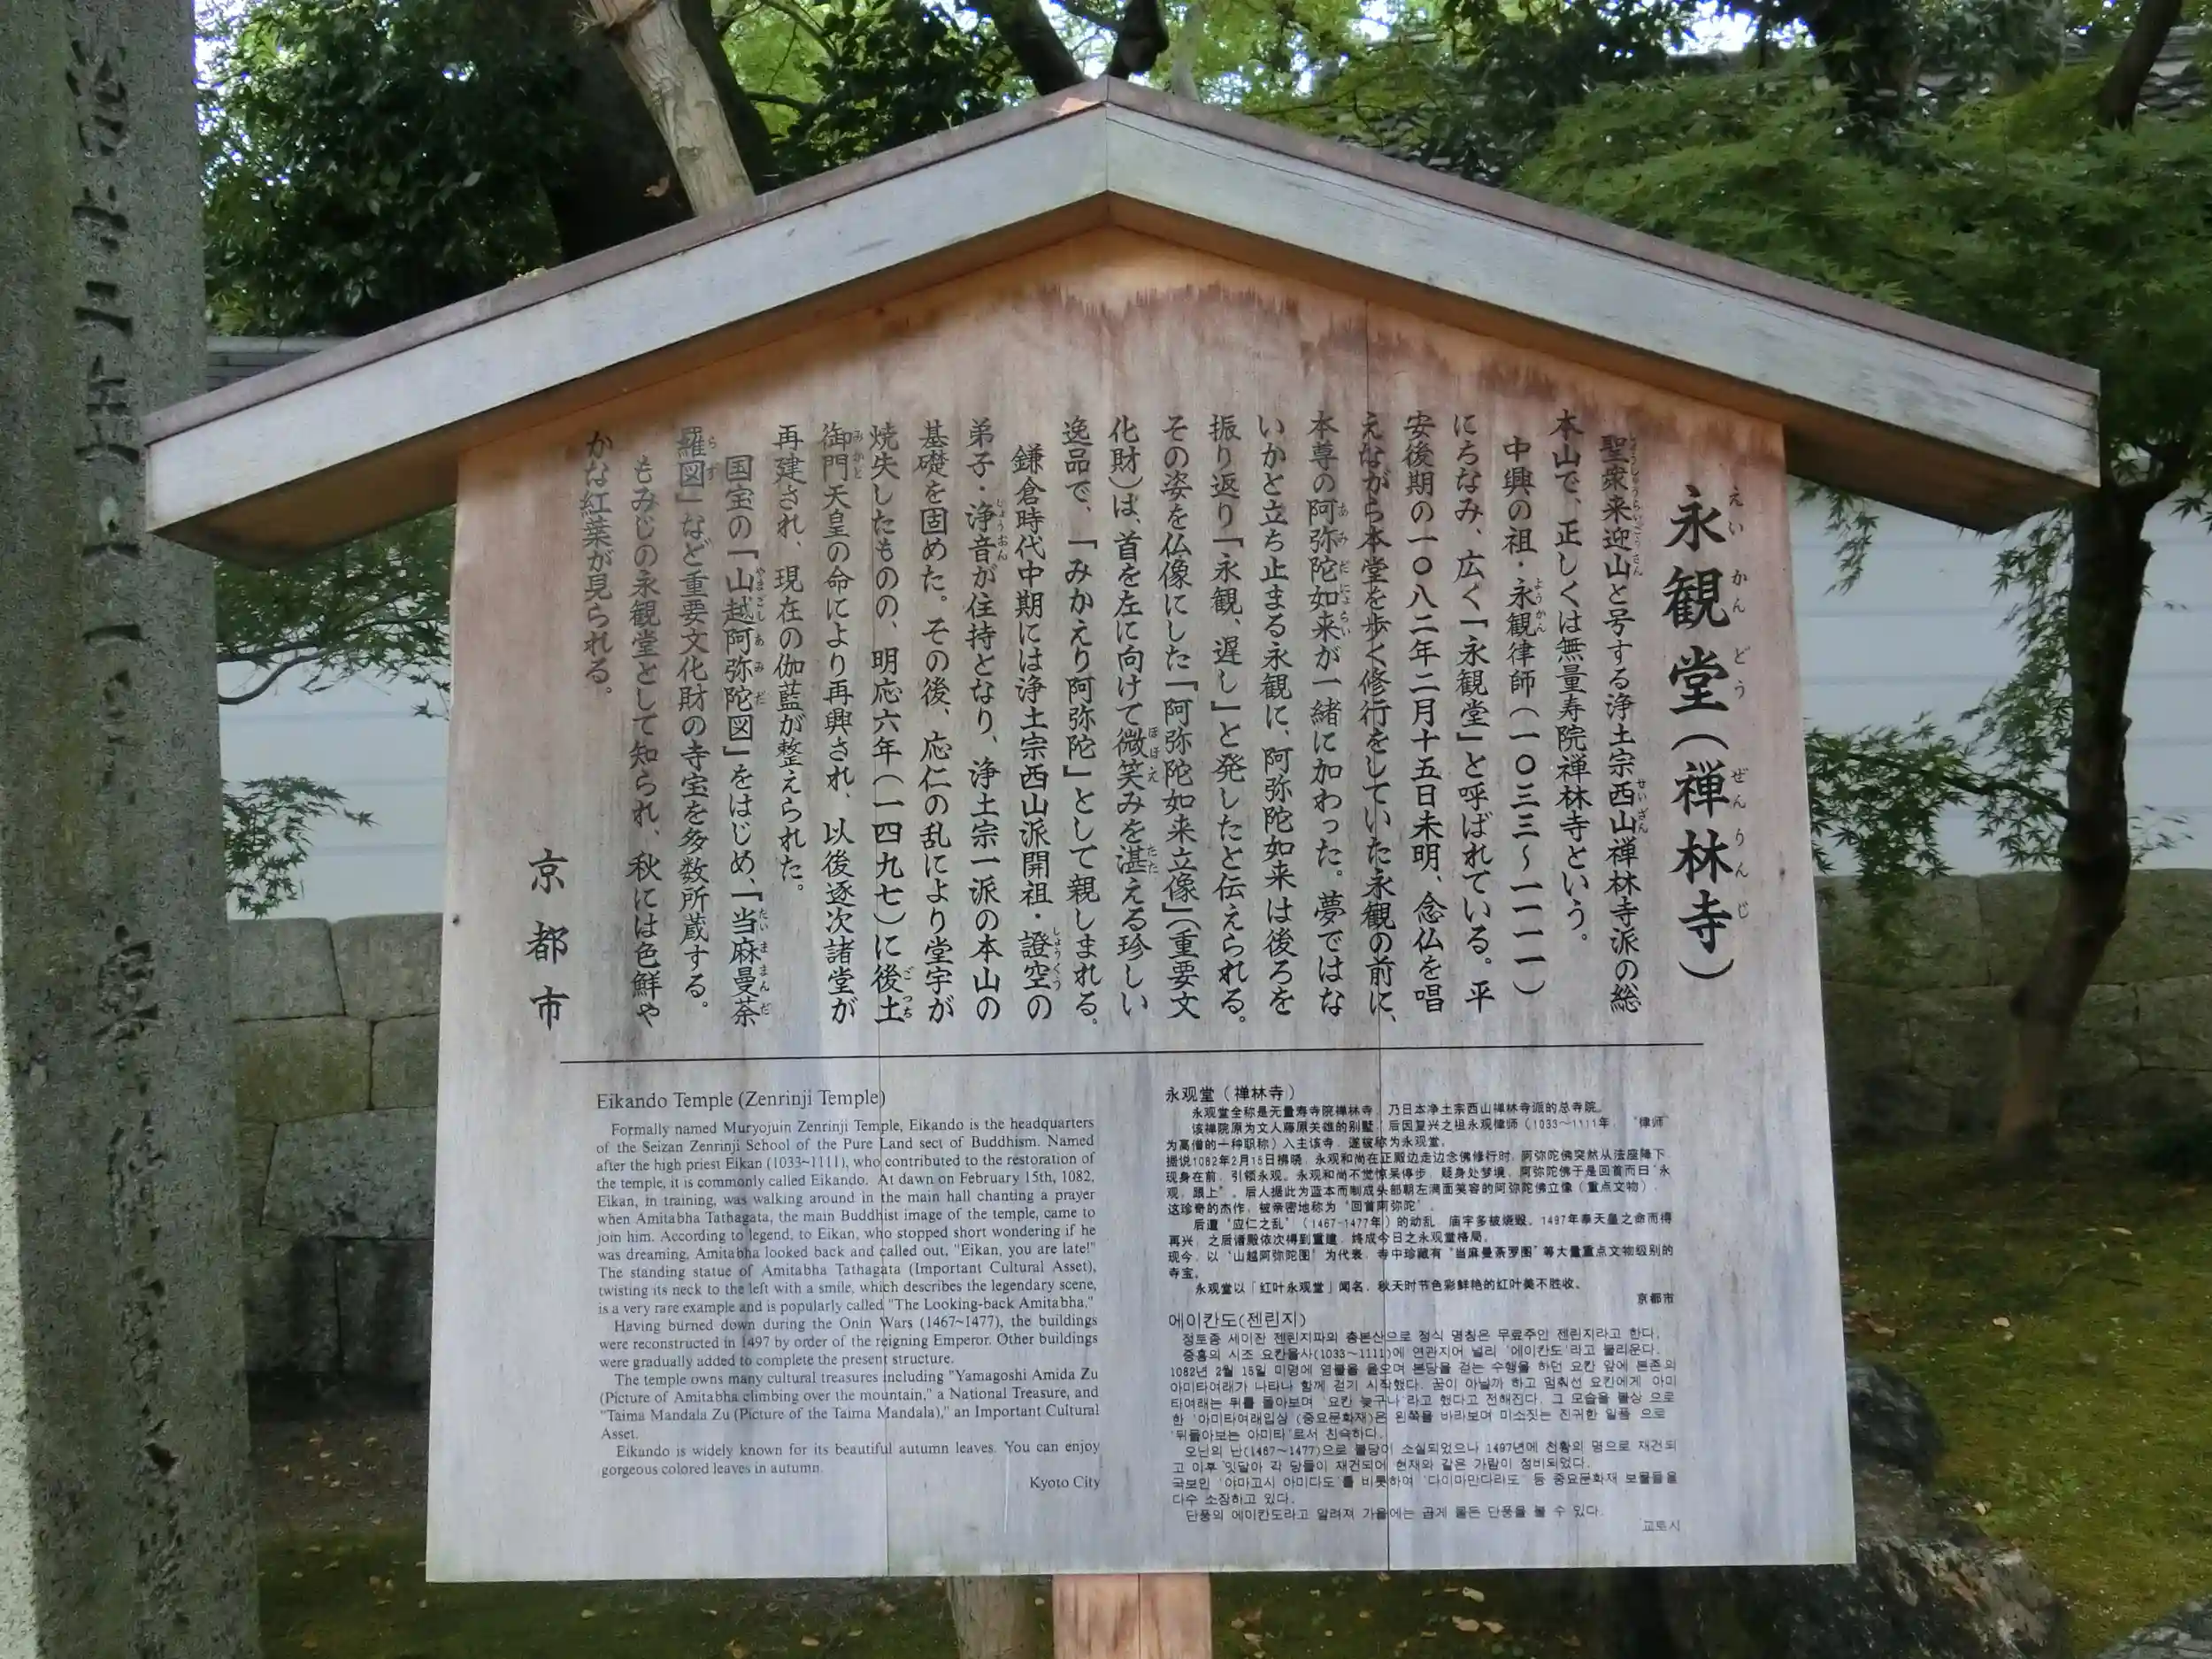 永観堂(禅林寺)
聖衆来迎山と号する浄土宗西山禅林寺派の総
本山で、正しくは無量寿院禅林寺という。
中興の祖・永観律師(一〇三三〜一一一一)
にちなみ、広く「永観堂」と呼ばれている。平
安後期の一〇八二年二月十五日未明、念仏を唱
えながら本堂を歩く修行をしていた永観の前に、
本尊の阿弥陀如来が一緒に加わった。夢ではな
いかと立ち止まる永観に、阿弥陀如来は後ろを
振り返り「永観、遅し」と発したと伝えられる。
その姿を仏像にした「阿弥陀如来立像」(重要文
化財)は、首を左に向けて微笑みを湛える珍しい
逸品で、「みかえり阿弥陀」として親しまれる。
鎌倉時代中期には浄土宗西山派開祖・證空の
弟子・浄音が住持となり、浄土宗一派の本山の
基礎を固めた。その後、応仁の乱により堂宇が
焼失したものの、明応六年(一四九七)に後土
御門天皇の命により再興され、以後逐次諸堂が
再建され、現在の伽藍が整えられた。
国宝の「山越阿弥陀図」をはじめ、「当麻曼荼
羅図」など重要文化財の寺宝を多数所蔵する。
もみじの永観堂として知られ、秋には色鮮や
かな紅葉が見られる。
京都市
Eikando Temple (Zenrinji Temple)
Formally named Muryojuin Zenrinji Temple, Eikando is the headquarters
of the Seizan Zenrinji School of the Pure Land sect of Buddhism. Named
after the high priest Eikan (1033~1111), who contributed to the restoration of
the temple, it is commonly called Eikando. At dawn on February 15th, 1082,
Eikan, in training, was walking around in the main hall chanting a prayer
when Amitabha Tathagata, the main Buddhist image of the temple, came to
join him. According to legend, to Eikan, who stopped short wondering if he
was dreaming, Amitabha looked back and called out, "Eikan, you are late!"
The standing statue of Amitabha Tathagata (Important Cultural Asset),
twisting its neck to the left with a smile, which describes the legendary scene,
is a very rare example and is popularly called "The Looking-back Amitabha,"
Having burned down during the Onin Wars (1467~1477), the buildings
were reconstructed in 1497 by order of the reigning Emperor. Other buildings
were gradually added to complete the present structure.
The temple owns many cultural treasures including "Yamagoshi Amida Zu
(Picture of Amitabha climbing over the mountain," a National Treasure, and
"Taima Mandala Zu (Picture of the Taima Mandala)," an Important Cultural
Asset.
Eikando is widely known for its beautiful autumn leaves. You can enjoy
gorgeous colored leaves in autumn.
Kyoto City
永观堂(禅林寺)
永观堂全称是无量寿寺院禅林寺,乃日本净土宗西山禅林寺派的总寺院。
该禅院原为文人藤原关雄的别墅,后因复兴之祖永观律师(1033~1111年,"律师"
为高僧的一种职称)入主该寺,遂被称为永观堂。
据说1082年2月15日拂晓,永观和尚在正殿边走边念佛修行时,阿弥陀佛突然从法座降下,
现身在前,引领永观。永观和尚不觉惊呆停步,疑身处梦境,阿弥陀佛于是回首而曰"永
观,跟上"。后人据此为蓝本而制成头部朝左满面笑容的阿弥陀佛立像(重点文物),
这珍奇的杰作,被亲密地称为"回首阿弥陀"。
后遭"应仁之乱"(1467-1477年)的动乱,庙宇多被烧毁。1497年奉天皇之命而得
再兴,之后诸殿依次得到重建,终成今日之永观堂格局。
现今,以"山越阿弥陀图"为代表,寺中珍藏有"当麻曼荼罗图"等大量重点文物级别的
寺宝。
永观堂以「红叶永观堂」闻名,秋天时节色彩鲜艳的红叶美不胜收。
京都市
에이칸도(젠린지)
정토종 세이잔 젠린지파의 총본산으로 정식 명칭은 무료주인 젠린지라고 한다.
중흥의 시조 요칸율사(1033~1111)에 연관지어 널리 '에이칸도'라고 불리운다.
1082년 2월 15일 미명에 염불을 읊으며 본당을 걷는 수행을 하던 요칸 앞에 본존의
아미타여래가 나타나 함께 걷기 시작했다. 꿈이 아닐까 하고 멈춰선 요칸에게 아미
타여래는 뒤를 돌아보며 '요칸 늦구나'라고 했다고 전해진다. 그 모습을 불상 으로
한 '아미타여래입상 (중요문화재)은 왼쪽을 바라보며 미소짓는 진귀한 일품 으로
'뒤돌아보는 아미타'로서 친숙하다.
오닌의 난(1467~1477)으로 불당이 소실되었으나 1497년에 천황의 명으로 재건되
고 이후 잇달아 각 당들이 재건되어 현재와 같은 가람이 정비되었다.
국보인 '야마고시 아미다도'를 비롯하여 '다이마만다라도' 등 중요문화재 보물들을
다수 소장하고 있다.
단풍의 에이칸도라고 알려져 가을에는 곱게 물든 단풍을 볼 수 있다.
교토시